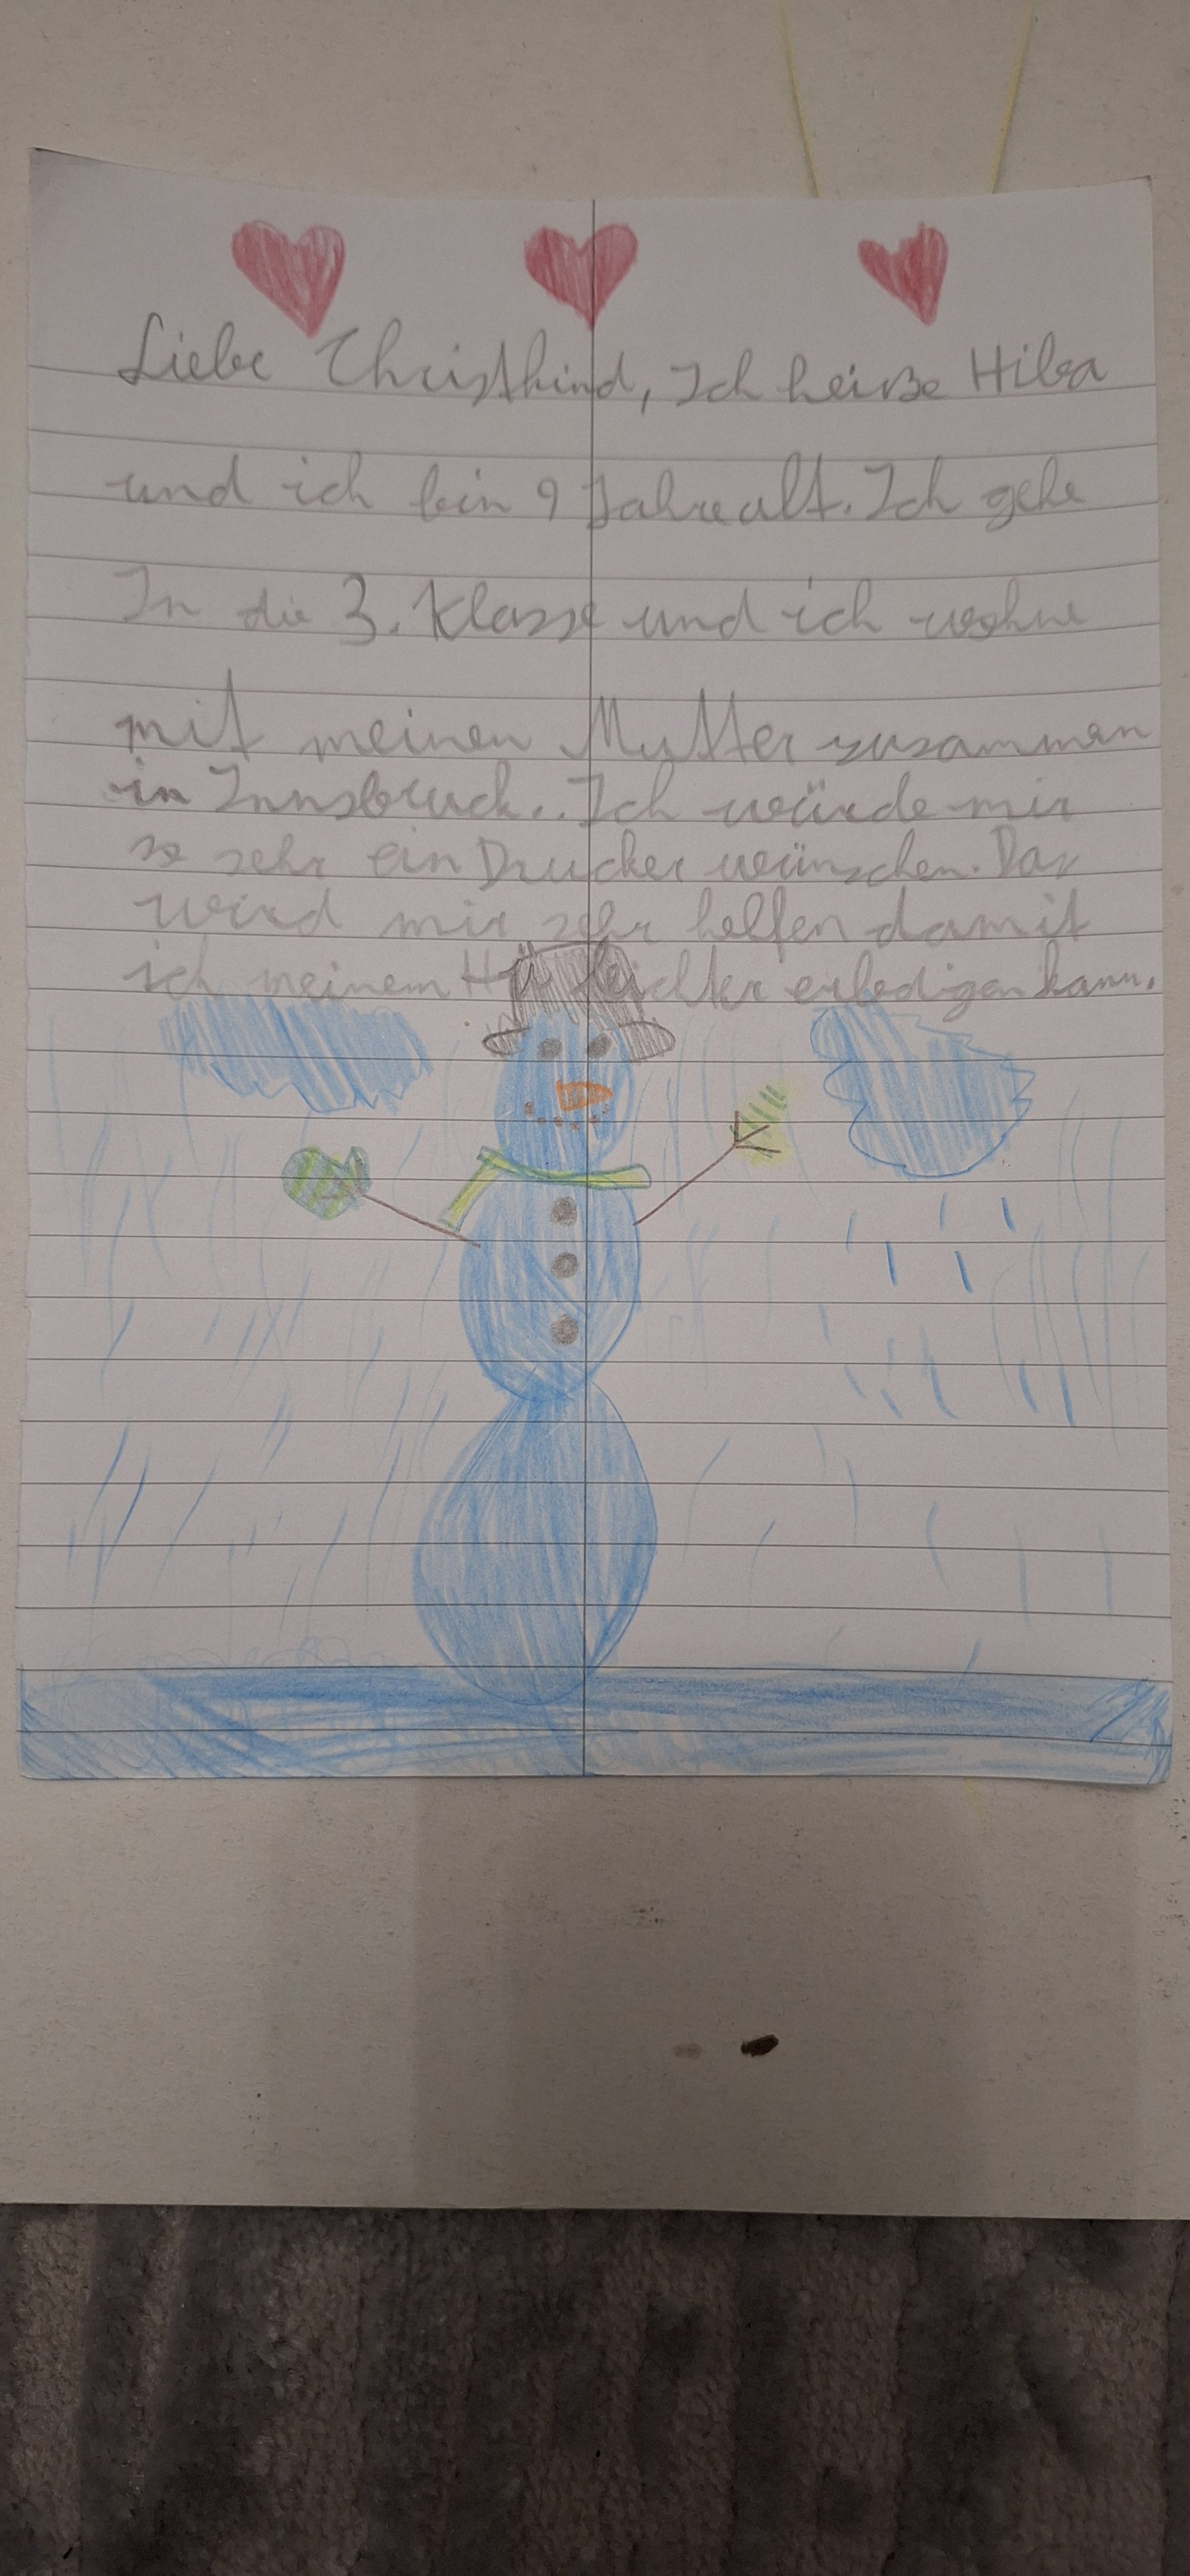 Liebe Christkind, Ich heiße Hiba
und ich bin 9 Jahre alt. Ich gehe
In die 3. Klasse und ich wohne
mit meinen Mutter zusammen
in Innsbruck.. Ich würde mir
so sehr ein Drucker wünschen. Das
wird mir sehr helfen damit
ich meinem HÜ leichter erledigen kann.